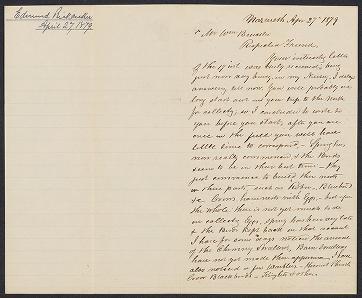 Edmund Ricksecker
April 27, 1879.
Nazareth Apr 27th 1879
Mr Wm Brewster
Respected Friend,
Your interesting letter
of the 17 inst was duly received, being
just now very busy, in my Nursery, I delay
answering till now. You will probably ere
long start out on your trip to the North
for collecting, so I concluded to write to
you before you start, after you are
once in the field you will have
little time to correspond. Spring has
now really commenced & the Birds
seem to be in their best time. They
just commence to build their nests
in these parts, such as Robin, Bluebird
&c. Crows have nests with Eggs, but upon
the whole there is not yet much to do
on collecting Eggs, Spring has been very late
& the Birds kept back on that account
I have for some days noticed the arrival
of the Chimney Swallows, Barn Swallows
have not yet made their appearance. I have
also noticed a few Warblers, Hermit Thrush
Crow Blackbirds